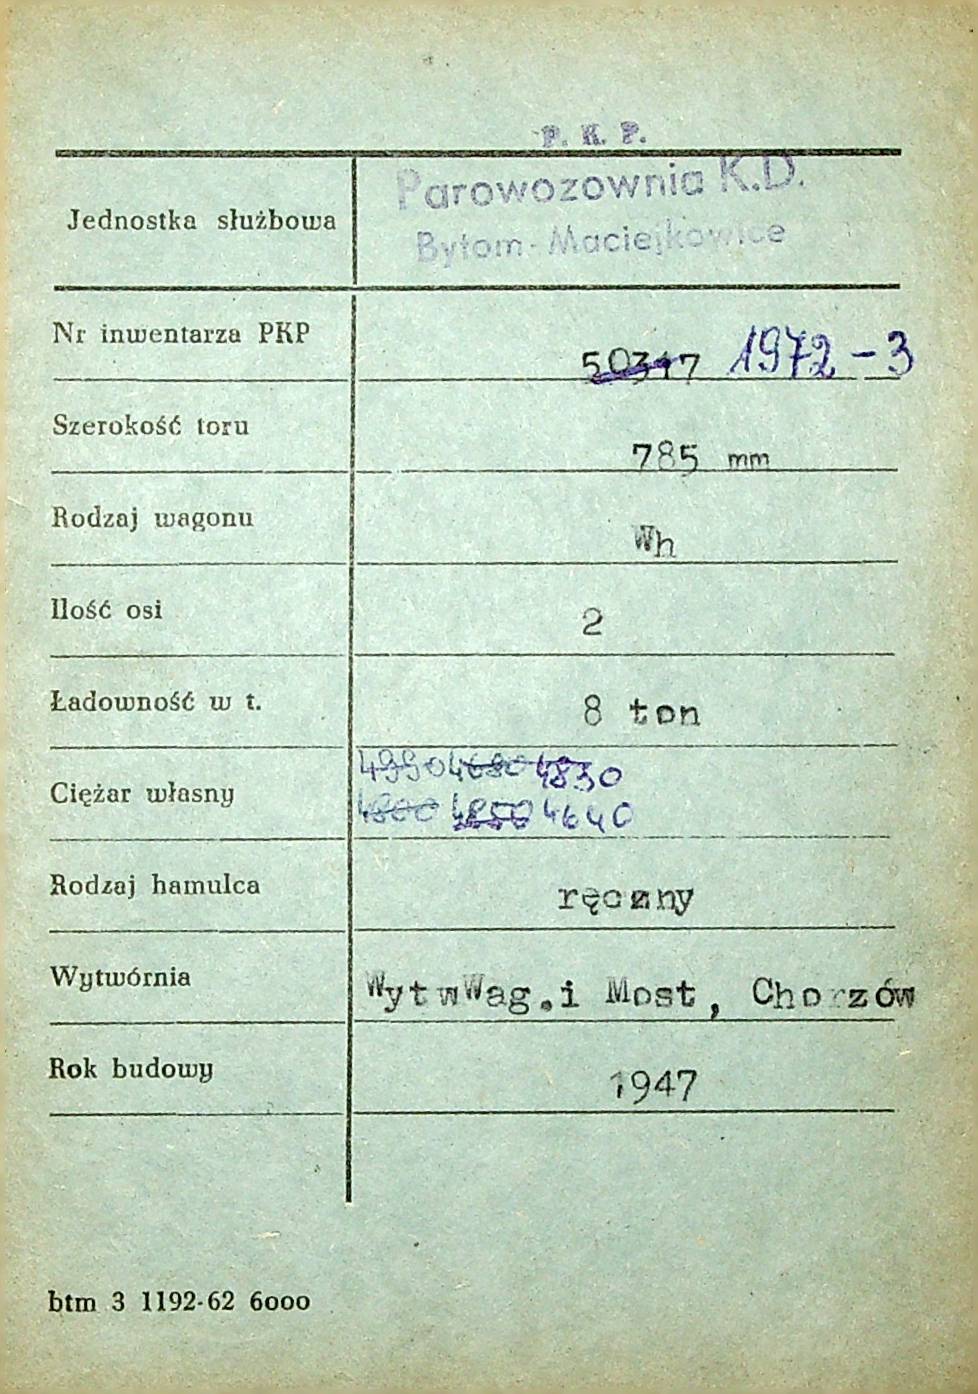 P. K. P.
Jednostka służbowa Parowozownia K.D.
Bytom-Maciejkowice
Nr inwentarza PKP 50347 1972-3
Szerokość toru 785 mm
Rodzaj wagonu Wh
Ilość osi 2
Ładowność w t. 8 ton
4990 4680 4830
Ciężar własny 4800 4850 4640
Rodzaj hamulca ręczny
Wytwórnia WytwWag.i Most, Chorzów
Rok budowy 1947
btm 3 1192-62 6000